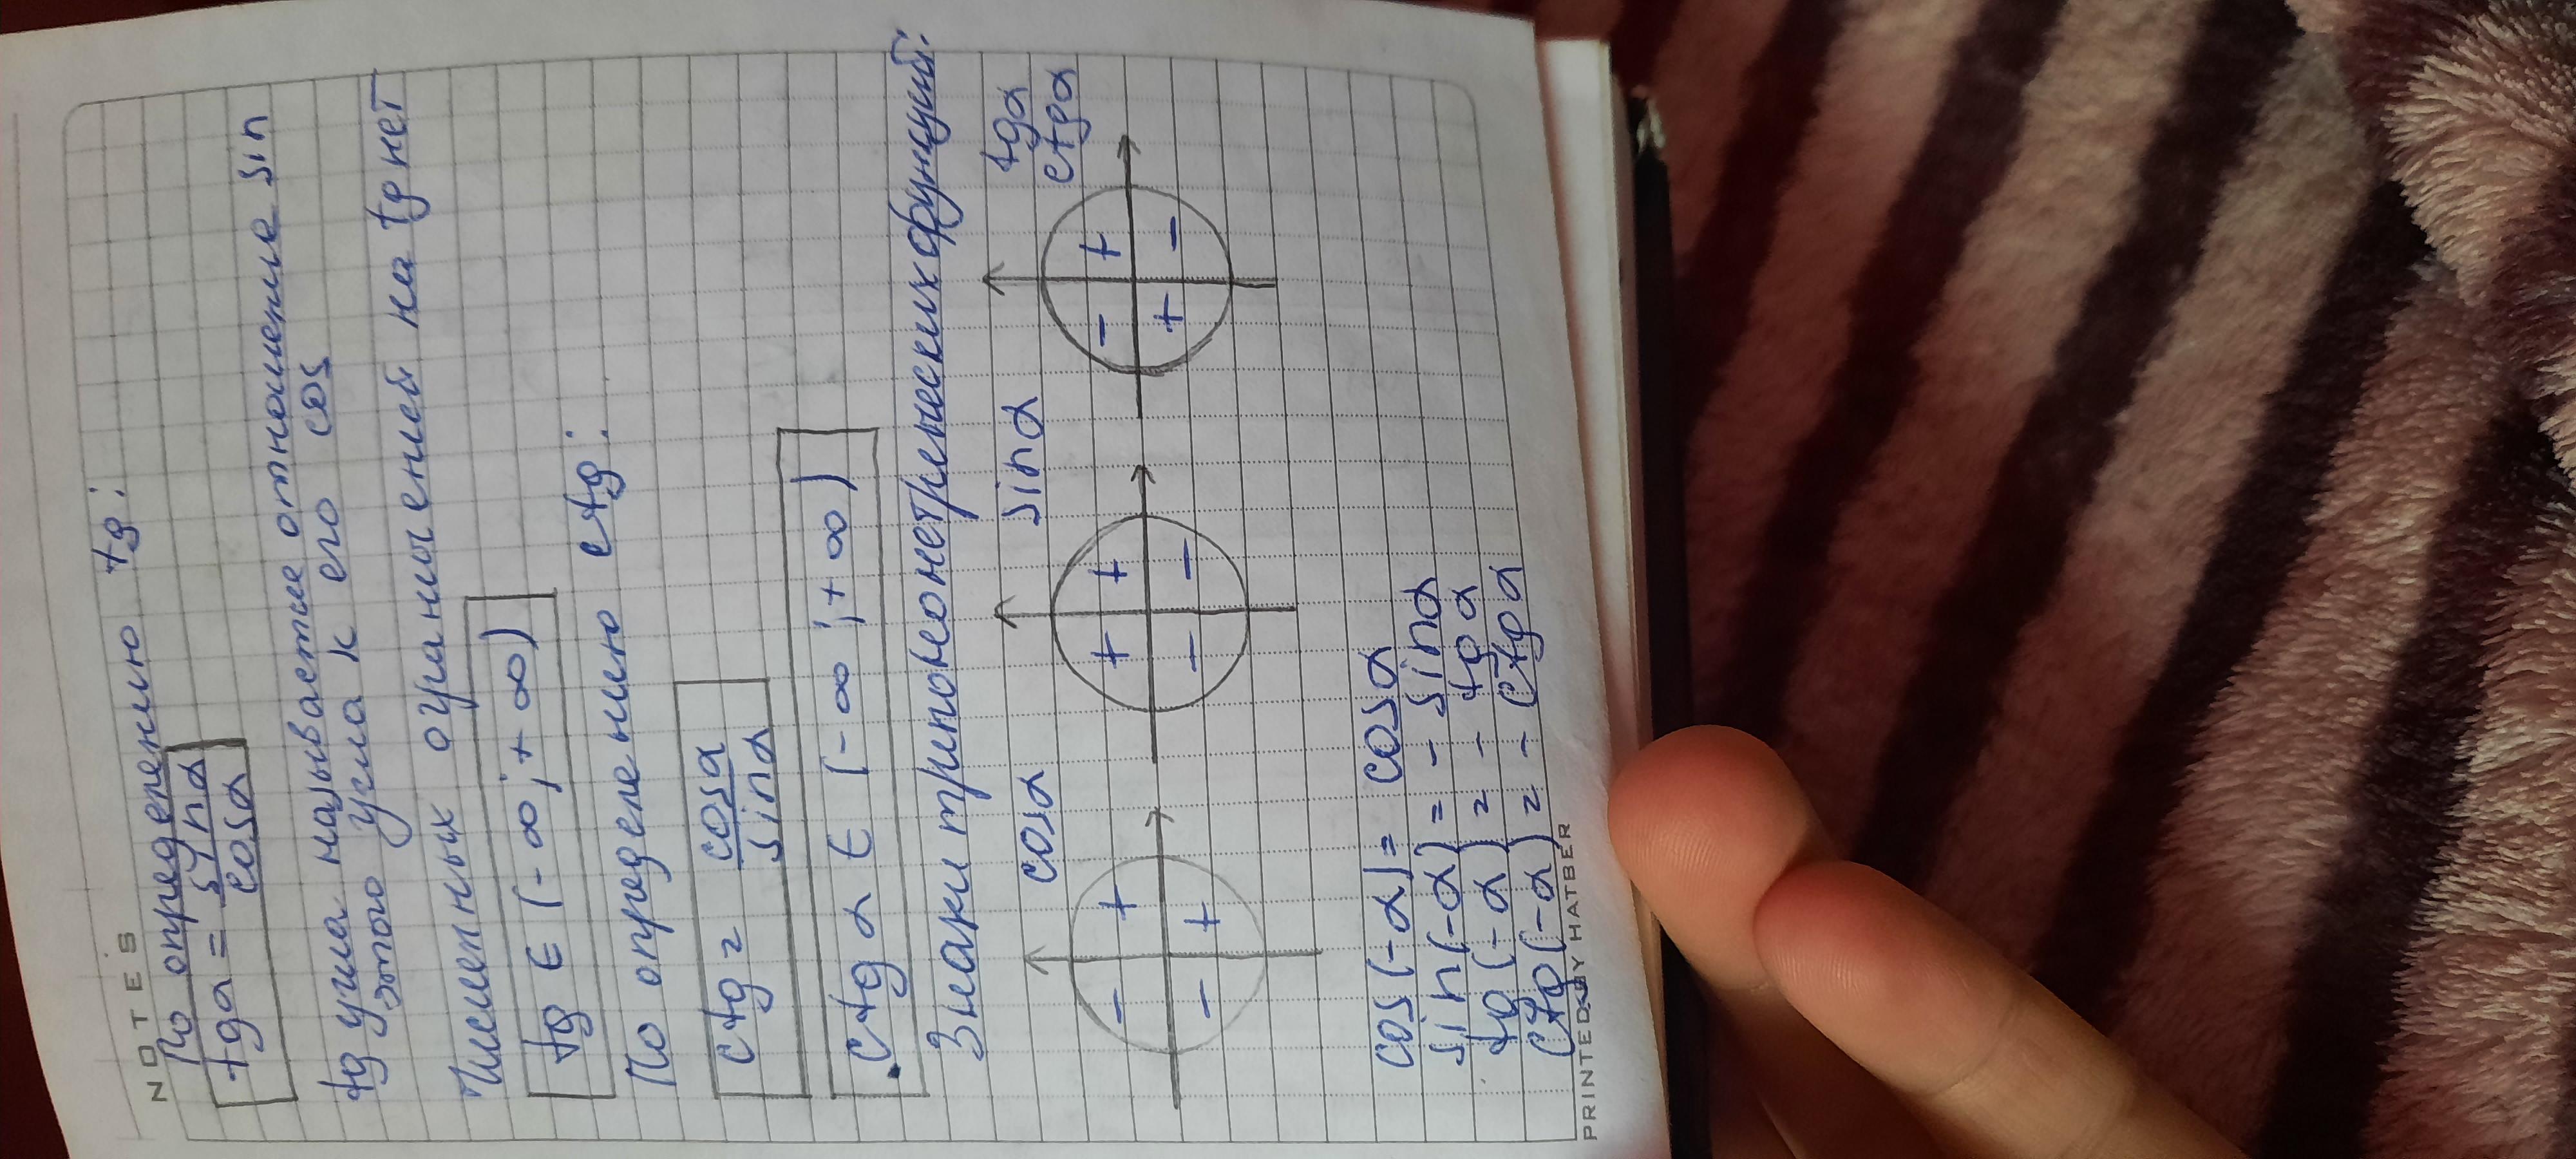 NOTES
По определению tg:
tgα = sinα
cosα
tg угла называется отношение sin
этого угла к его cos
Численных ограничений на tg нет
tg ∈ (-∞;+∞)
По определению ctg:
ctg = cosα
sinα
ctgα ∈ (-∞;+∞)
Знаки тригонометрических функций:
cosα sinα tgα
ctgα
- + + + - +
- + - - + -
cos(-α) = cosα
sin(-α) = - sinα
tg(-α) = - tgα
ctg(-α) = - ctgα
PRINTED BY HATBER